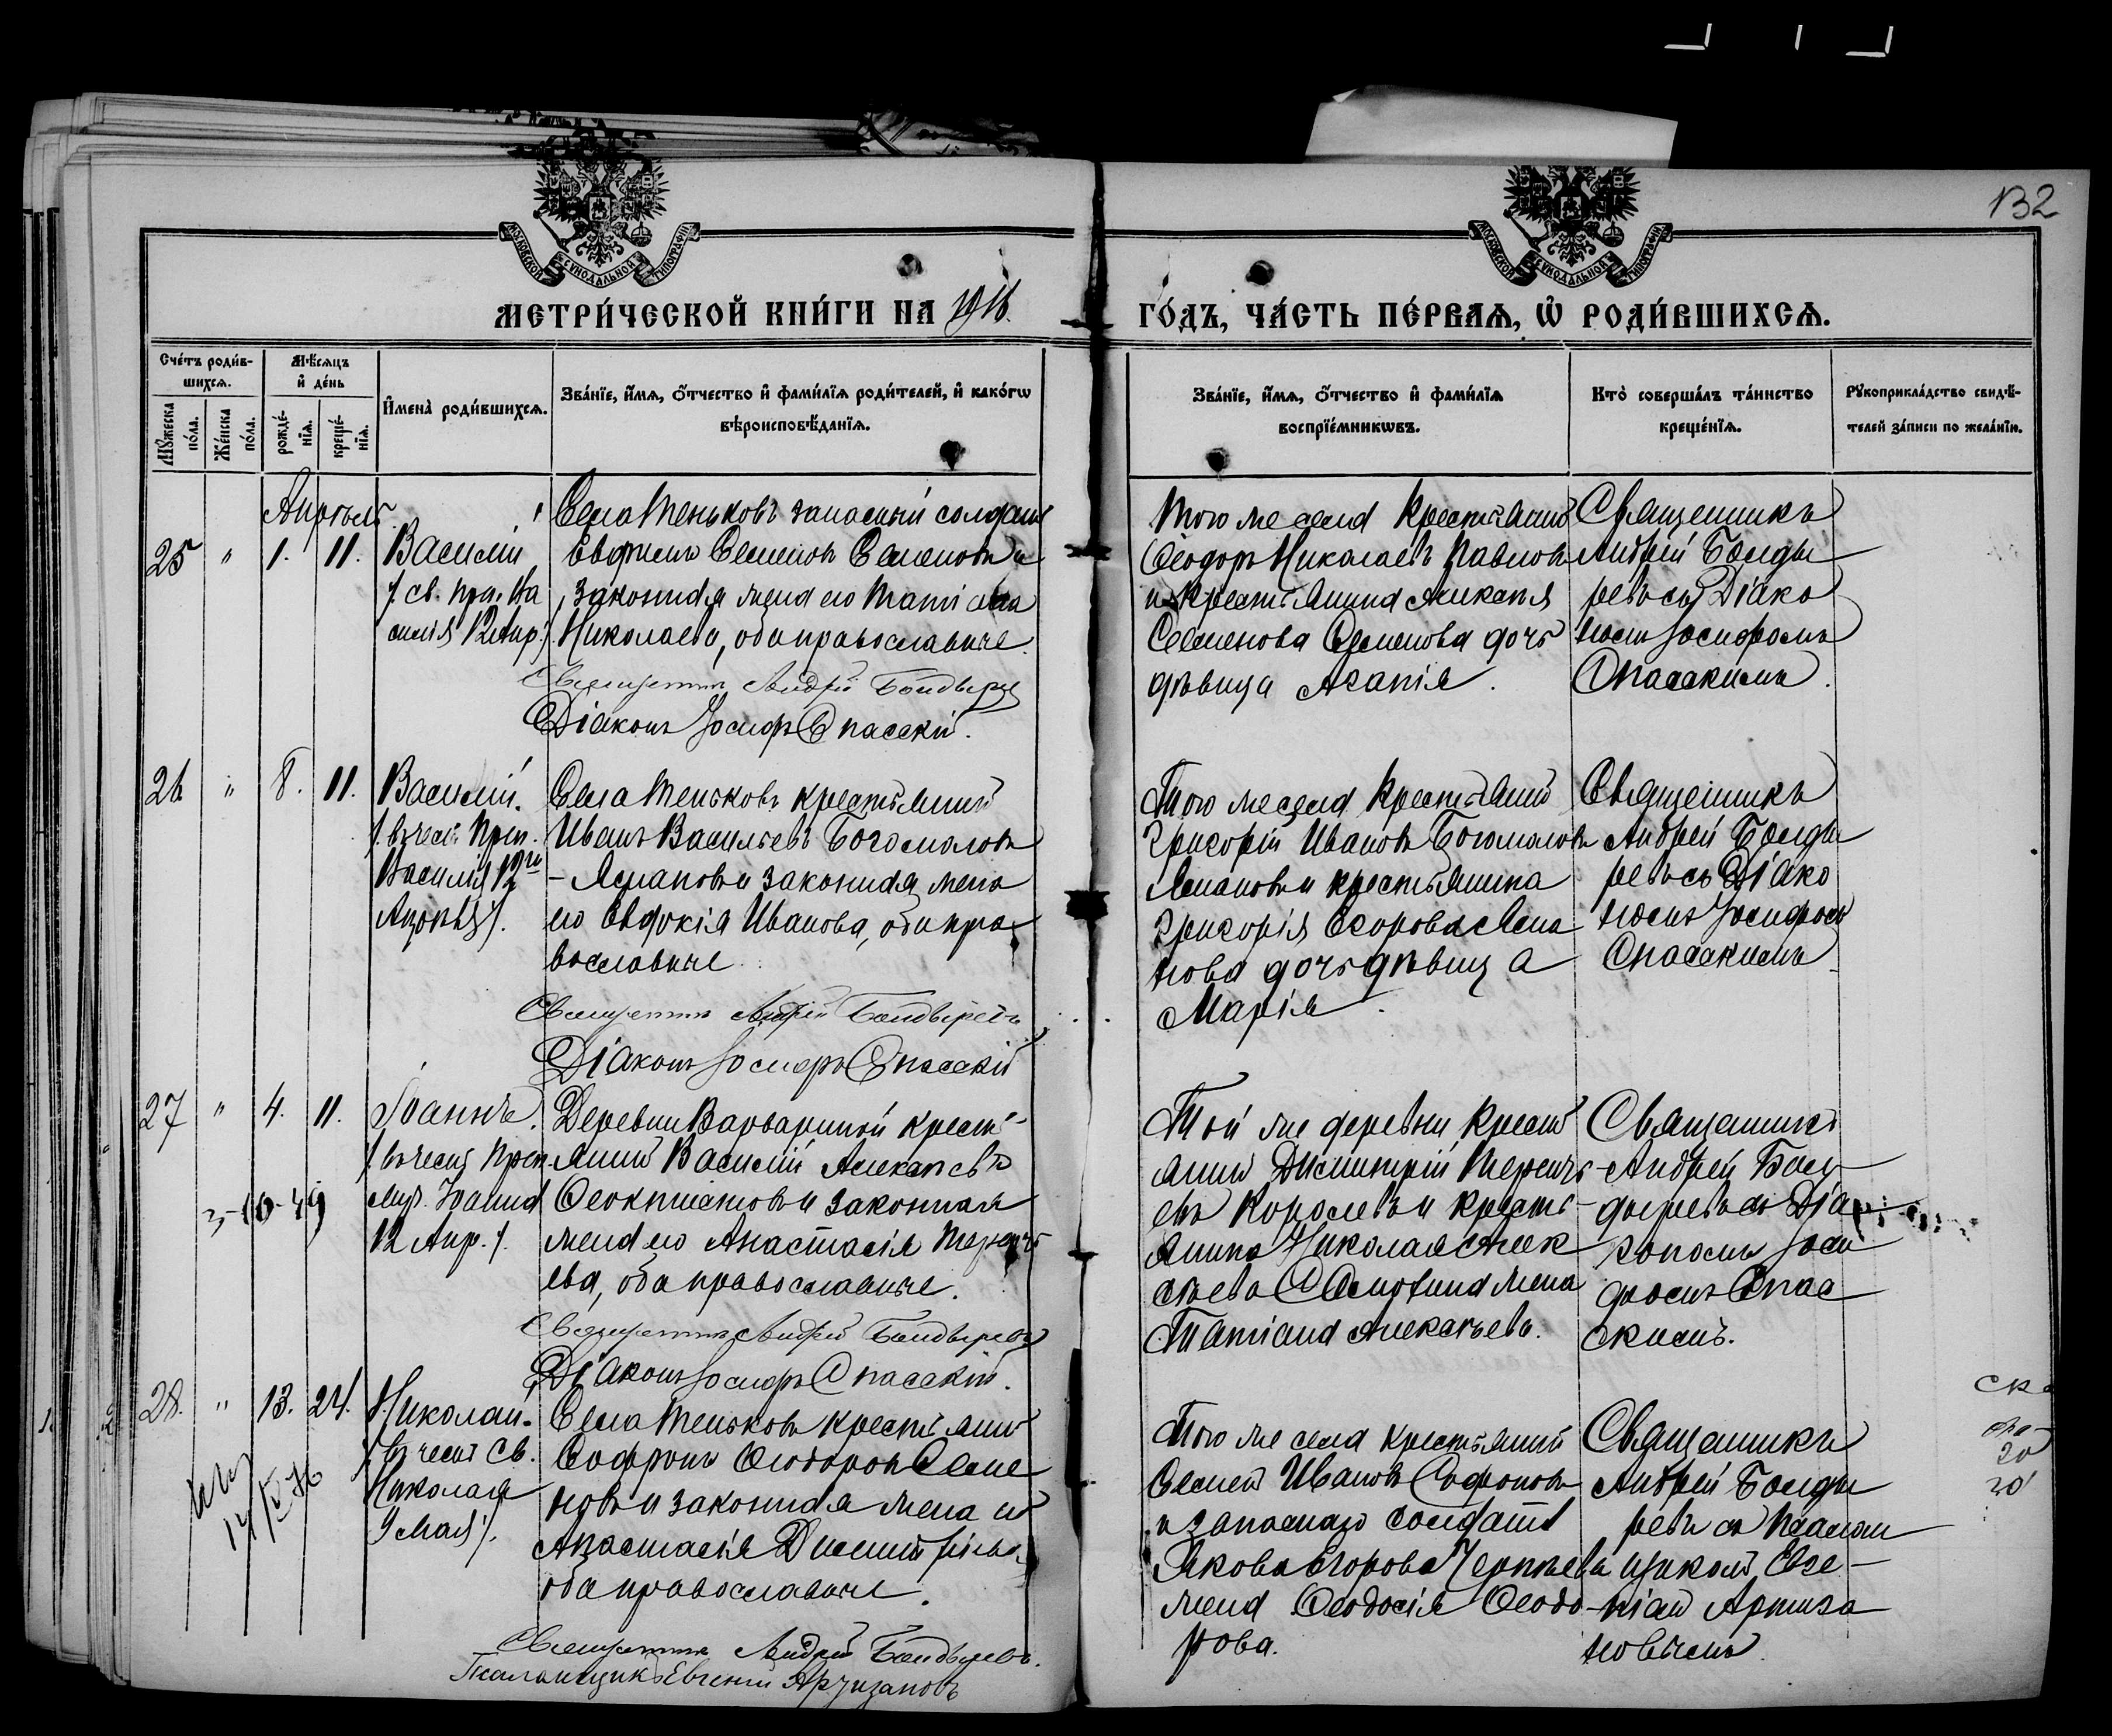 132
МОСКОВСКОЙ СѴНОДАЛЬНОЙ ТИПОГРАФІИ
МОСКОВСКОЙ СѴНОДАЛЬНОЙ ТИПОГРАФІИ
МЕТРИ́ЧЕСКОЙ КНИ́ГИ НА 1916
ГО́ДЪ, ЧА́СТЬ ПЕ́РВАѦ, Ѿ РОДИ́ВШИХСѦ.
Сче́тъ роди́в-
шихсѧ.
Мꙋ́жеска по́ла.
Же́нска по́ла.
Мѣ́сѧцъ и҆ де́нь
рожде́-нїѧ.
креще́-нїѧ.
И҆мена̀ роди́вшихсѧ.
Зва́нїе, и҆́мѧ, ѻ҆́тчество и҆ фами́лїѧ роди́телей, и҆ како́гѡ
вѣроисповѣ́данїѧ.
Зва́нїе, и҆́мѧ, ѻ҆́тчество и҆ фами́лїѧ
воспрїе́мникѡвъ.
Кто̀ соверша́лъ та́инство
креще́нїѧ.
Рꙋкоприкла́дство свидѣ́-
телей за́писи по жела́нїю.
Апрѣль
25 " 1. 11. Василій
/св. пре. Ва
силія 12 Апр./
Села Теньковъ запасный солдатъ
Евфимъ Семеновъ Семеновъ и
законная жена его Татіана
Николаева, оба православные.
Священникъ Андрей Болдырев
Діаконъ Іосифъ Спасскій.
Того же села крестьянинъ
Ѳеодоръ Николаевъ Павловъ
и крестьянина Алексѣя
Семенова Семенова дочь
дѣвица Агапія.
Священникъ
Андрей Болды
ревъ съ Діако
номъ Іосифомъ
Спасскимъ.
26 " 8. 11. Василій.
/въ честь Преп.
Василія 12го
Апрѣля/.
Села Теньковъ крестьянинъ
Иванъ Васильевъ Богомоловъ
- Асмановъ и законная жена
его Евдокія Иванова, оба пра
вославные.
Священникъ Андрей Болдыревъ
Діаконъ Іосифъ Спасскій
Того же села крестьянинъ
Григорій Ивановъ Богомоловъ
и крестьянина
Григорія Егорова
нова дочь дѣвица
Марія.
Священникъ
Андрей Болды
ревъ съ Діако
номъ Іосифомъ
Спасскимъ
27 " 4. 11. Іоаннъ.
/въ честь Преп.
Іоанна
12 Апр./.
Деревни Варвариной кресть-
янинъ Василій Алексѣевъ
Ѳеоктистовъ и законная
жена его Анастасія Терентьева,
оба православные.
Священникъ Андрей Болдыревъ
Діаконъ Іосифъ Спасскій.
Той же деревни крестьянинъ
Димитрій Терентьевъ
Королевъ и кресть-
янина Николая Алек
сѣева жена
Татіана Алексѣева.
Священникъ
Андрей Бол-
дыревъ съ Діа
кономъ Іоси
фомъ Спас
скимъ.
28. " 13. 24. Николай.
/въ честь Св.
Николая
9 Мая/.
Села Теньковъ крестьянинъ
Софронъ Ѳеодоровъ Семе
новъ и законная жена его
Анастасія Димитріева,
оба православные.
Священникъ Андрей Болдыревъ.
Псаломщикъ Евгеній Артизановъ
Того же села крестьянинъ
Семенъ Ивановъ Софроновъ
и запаснаго солдата
Якова Егорова
жена Ѳеодосія Ѳеодо-
рова.
Священникъ
Андрей Болды
ревъ съ Псалом
щикомъ Евге-
ніемъ Артиза
новымъ.